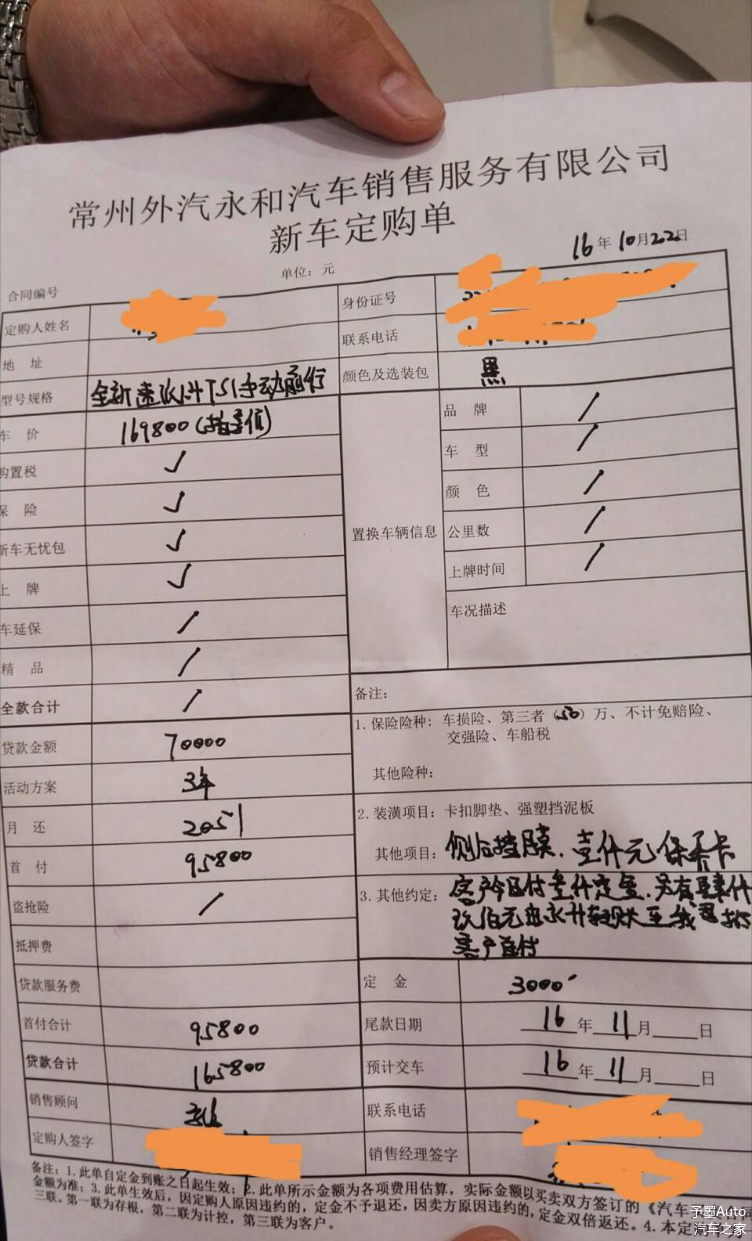 常州外汽永和汽车销售服务有限公司
新车定购单
16年10月22日
合同编号
单位：元
定购人姓名
身份证号
地 址
联系电话
型号规格 全新速派1.4TSI手动前行
颜色及选装包 黑
车 价 169800（指导值）
购置税 ✓
保 险 ✓
新车无忧包 ✓
上 牌 ✓
车延保 /
精 品 /
全款合计 /
置换车辆信息
品 牌 /
车 型 /
颜 色 /
公里数 /
上牌时间 /
车况描述
贷款金额 70000
活动方案 3年
月 还 2051
首 付 95800
盗抢险 /
抵押费
贷款服务费
首付合计 95800
贷款合计 165800
备注：
1.保险险种：车损险、第三者（50）万、不计免赔险、
交强险、车船税
其他险种：
2.装潢项目：卡扣脚垫、强塑挡泥板
其他项目：侧后挡膜.壹仟元保养卡
3.其他约定：客户今日付叁仟定金.另有
客户首付
定 金 3000
尾款日期 16年11月 日
预计交车 16年11月 日
销售顾问
联系电话
定购人签字
销售经理签字
备注：1.此单自定金到账之日起生效；2.此单所示金额为各项费用估算，实际金额以买卖双方签订的《汽车
金额为准；3.此单生效后，因定购人原因违约的，定金不予退还，因卖方原因违约的，定金双倍返还。4.本定
三联。第一联为存根，第二联为计控，第三联为客户。
予墨Auto
汽车之家